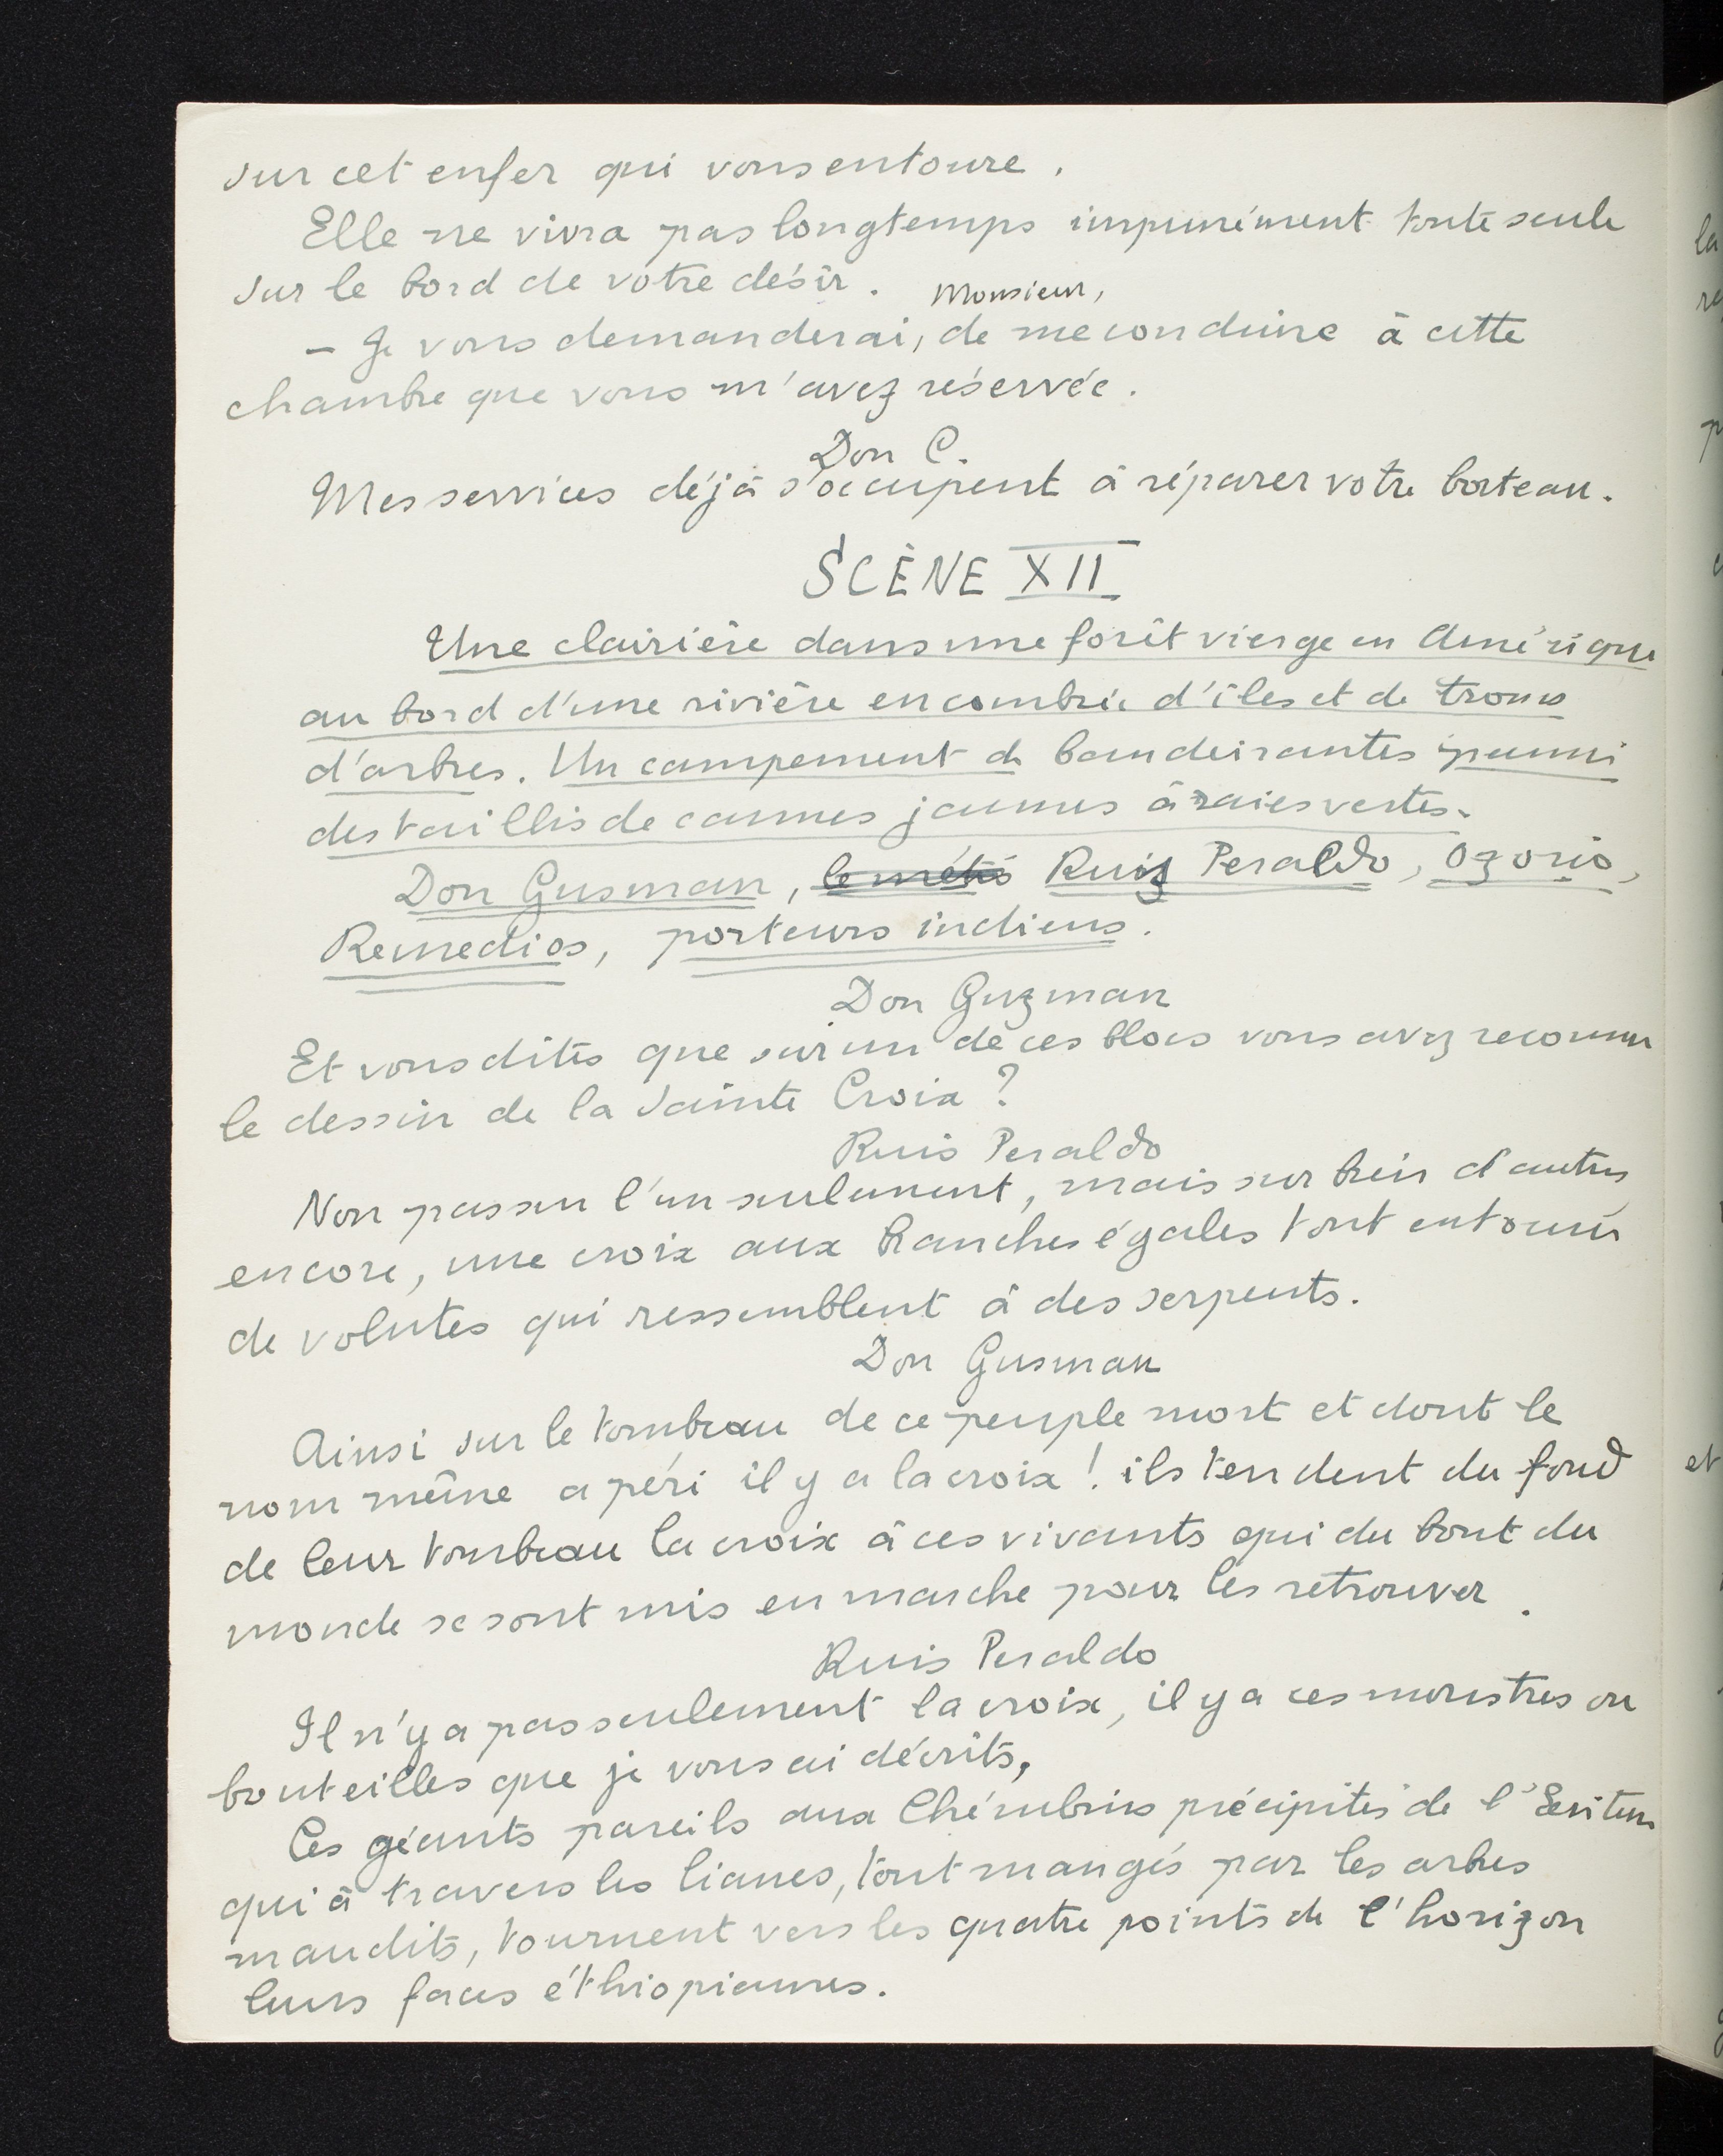 sur cet enfer qui vous entoure.
Elle ne vivra pas longtemps impunément toute seule
sur le bord de votre désir.
Monsieur,
— Je vous demanderai, de me conduire à cette
chambre que vous m'avez réservée.
Don C.
Mes services déjà s'occupent à réparer votre bateau.
SCÈNE XII
Une clairière dans une forêt vierge en Amérique
au bord d'une rivière encombrée d'îles et de troncs
d'arbres. Un campement de bandeirantes parmi
des taillis de cannes jaunes à raies vertes.
Don Gusman, le métis Ruiz Peraldo, Ozorio,
Remedios, porteurs indiens.
Don Guzman
Et vous dites que sur un de ces blocs vous avez reconnu
le dessin de la Sainte Croix ?
Ruis Peraldo
Non pas sur l'un seulement, mais sur bien d'autres
encore, une croix aux branches égales tout entourée
de volutes qui ressemblent à des serpents.
Don Gusman
Ainsi sur le tombeau de ce peuple mort et dont le
nom même a péri il y a la croix ! ils tendent du fond
de leur tombeau la croix à ces vivants qui du bout du
monde se sont mis en marche pour les retrouver.
Ruis Peraldo
Il n'y a pas seulement la croix, il y a ces monstres ou
bouteilles que je vous ai décrits,
Ces géants pareils aux Chérubins précipités de l'
qui à travers les lianes, tout mangés par les arbres
maudits, tournent vers les quatre points de l'horizon
leurs faces éthiopiennes.
la
et